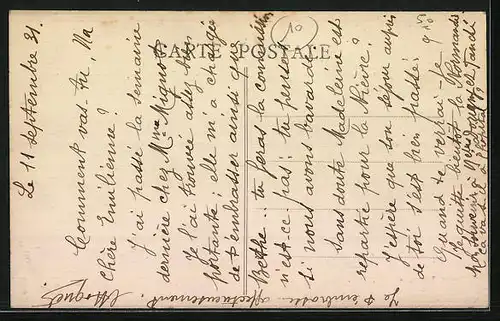 CARTE POSTALE
10
Le 11 septembre 31.
Comment vas-tu, Ma
chère Emilienne?
J'ai passé la semaine
dernière chez Mme Mignot
Je l'ai trouvée assez bien
portante; elle m'a chargée
de t'embrasser ainsi que
Berthe. tu feras la commission
n'est-ce pas; tu penses
si nous avons bavardé.
Sans doute Madeleine est
repartie pour la Nièvre?
J'espère que ton séjour auprès
de toi s'est bien passé.
Quand te verrai-je
Je quitte bientôt la Normandie
Je t'embrasse affectueusement.